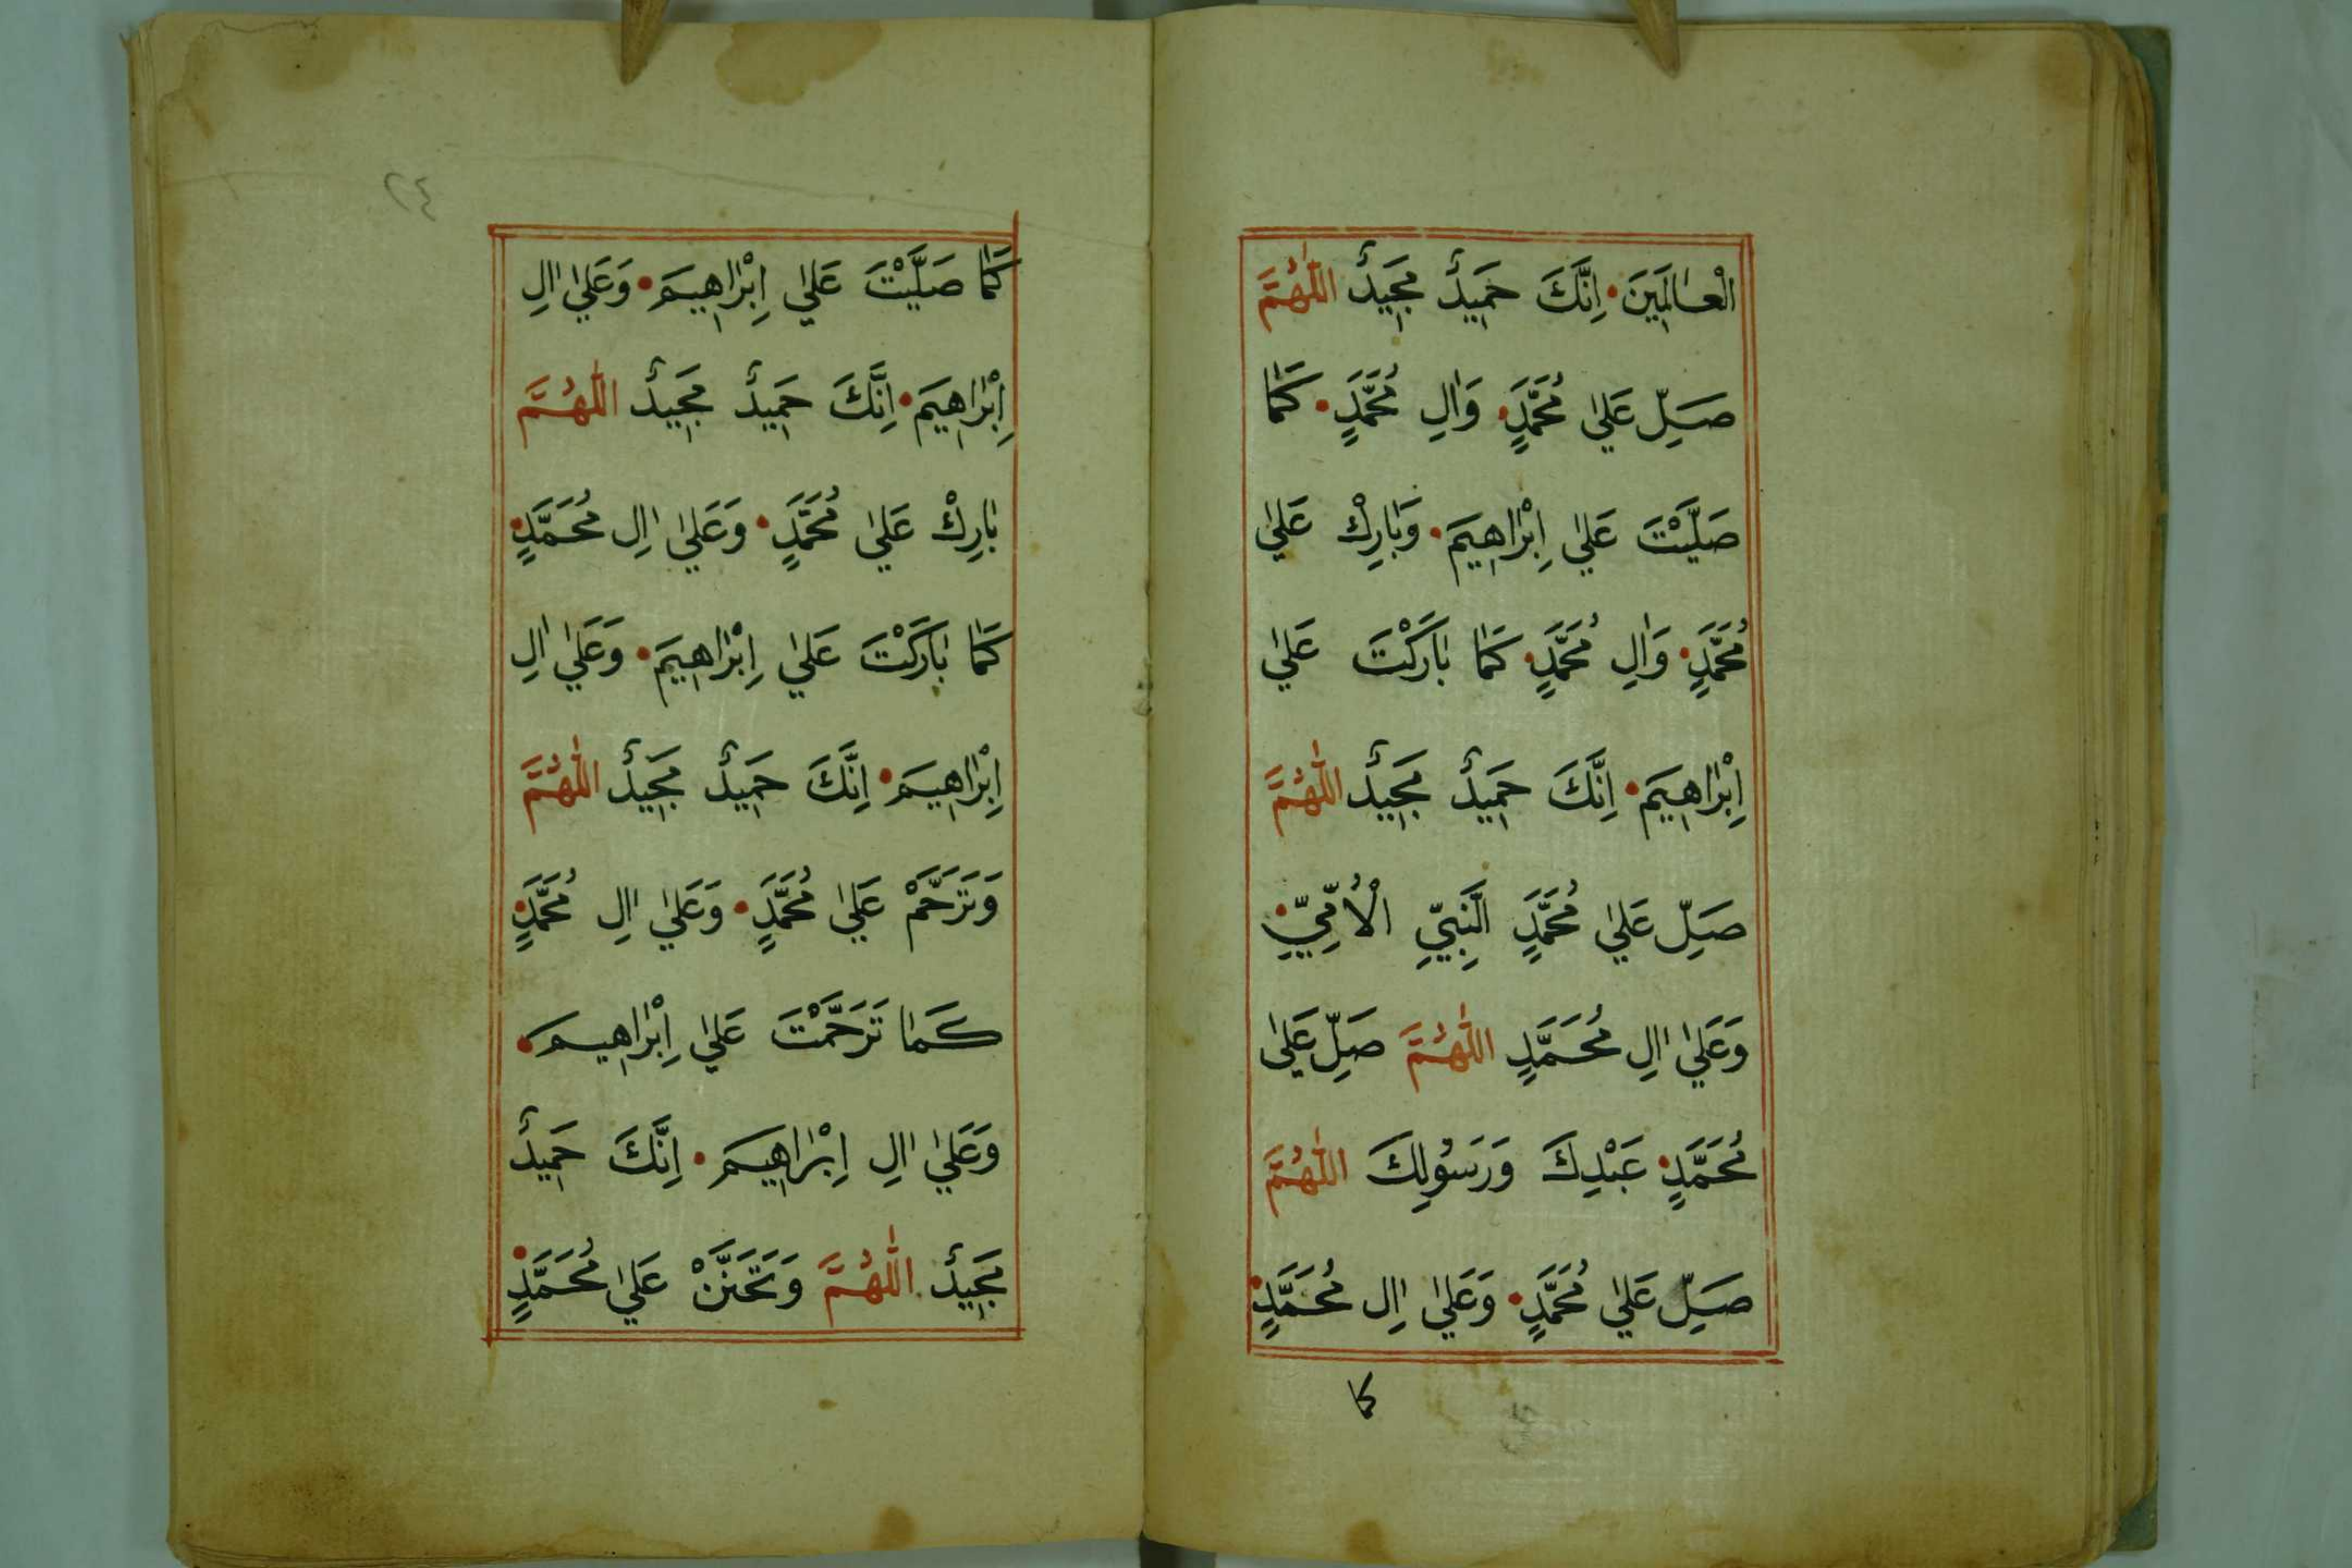 الْعَالَمِينَ۰ اِنَّكَ حَمِيدٌ مَجِيدٌ اَللّٰهُمَّ
صَلِّ عَلٰي مُحَمَّدٍ۰ وَاٰلِ مُحَمَّدٍ۰ كَمَا
صَلَّيْتَ عَلٰي اِبْرٰاهِيمَ۰ وَبٰارِكْ عَلٰي
مُحَمَّدٍ۰ وَاٰلِ مُحَمَّدٍ۰ كَمٰا بٰارَكْتَ عَلٰي
اِبْرٰاهِيمَ۰ اِنَّكَ حَمِيدٌ مَجِيدٌ اَللّٰهُمَّ
صَلِّ عَلٰي مُحَمَّدٍ النَّبِيِّ الْاُمِّيِّ۰
وَعَلٰي اٰلِ مُحَمَّدٍ اَللّٰهُمَّ صَلِّ عَلٰي
مُحَمَّدٍ۰ عَبْدِكَ وَرَسُولِكَ اَللّٰهُمَّ
صَلِّ عَلٰي مُحَمَّدٍ۰ وَعَلٰي اٰلِ مُحَمَّدٍ۰
كما
٢٤
كَمٰا صَلَّيْتَ عَلٰي اِبْرٰاهِيمَ۰ وَعَلٰي اٰلِ
اِبْرٰاهِيمَ۰ اِنَّكَ حَمِيدٌ مَجِيدٌ اَللّٰهُمَّ
بٰارِكْ عَلٰي مُحَمَّدٍ۰ وَعَلٰي اٰلِ مُحَمَّدٍ۰
كَمٰا بٰارَكْتَ عَلٰي اِبْرٰاهِيمَ۰ وَعَلٰي اٰلِ
اِبْرٰاهِيمَ۰ اِنَّكَ حَمِيدٌ مَجِيدٌ اَللّٰهُمَّ
وَتَرَحَّمْ عَلٰي مُحَمَّدٍ۰ وَعَلٰي اٰلِ مُحَمَّدٍ۰
كَمٰا تَرَحَّمْتَ عَلٰي اِبْرٰاهِيمَ۰
وَعَلٰي اٰلِ اِبْرٰاهِيمَ۰ اِنَّكَ حَمِيدٌ
مَجِيدٌ اَللّٰهُمَّ وَتَحَنَّنْ عَلٰي مُحَمَّدٍ۰